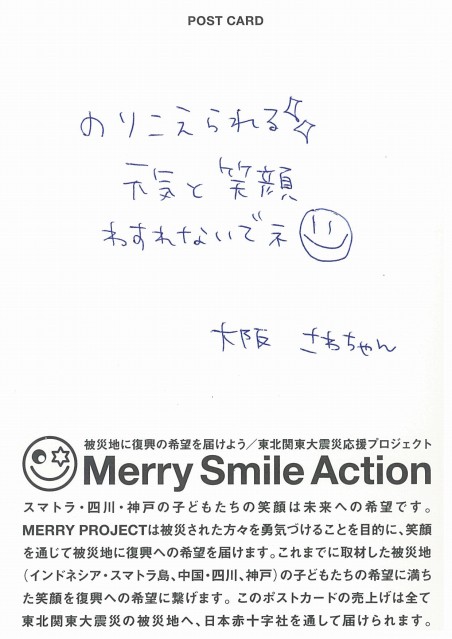 POST CARD
のりこえられる
天気と笑顔
わすれないでネ
大阪 さわちゃん
被災地に復興の希望を届けよう／東北関東大震災応援プロジェクト
Merry Smile Action
スマトラ・四川・神戸の子どもたちの笑顔は未来への希望です。
MERRY PROJECTは被災された方々を勇気づけることを目的に、笑顔
を通じて被災地に復興への希望を届けます。これまでに取材した被災地
（インドネシア・スマトラ島、中国・四川、神戸）の子どもたちの希望に満ち
た笑顔を復興への希望に繋げます。このポストカードの売上げは全て
東北関東大震災の被災地へ、日本赤十字社を通して届けられます。